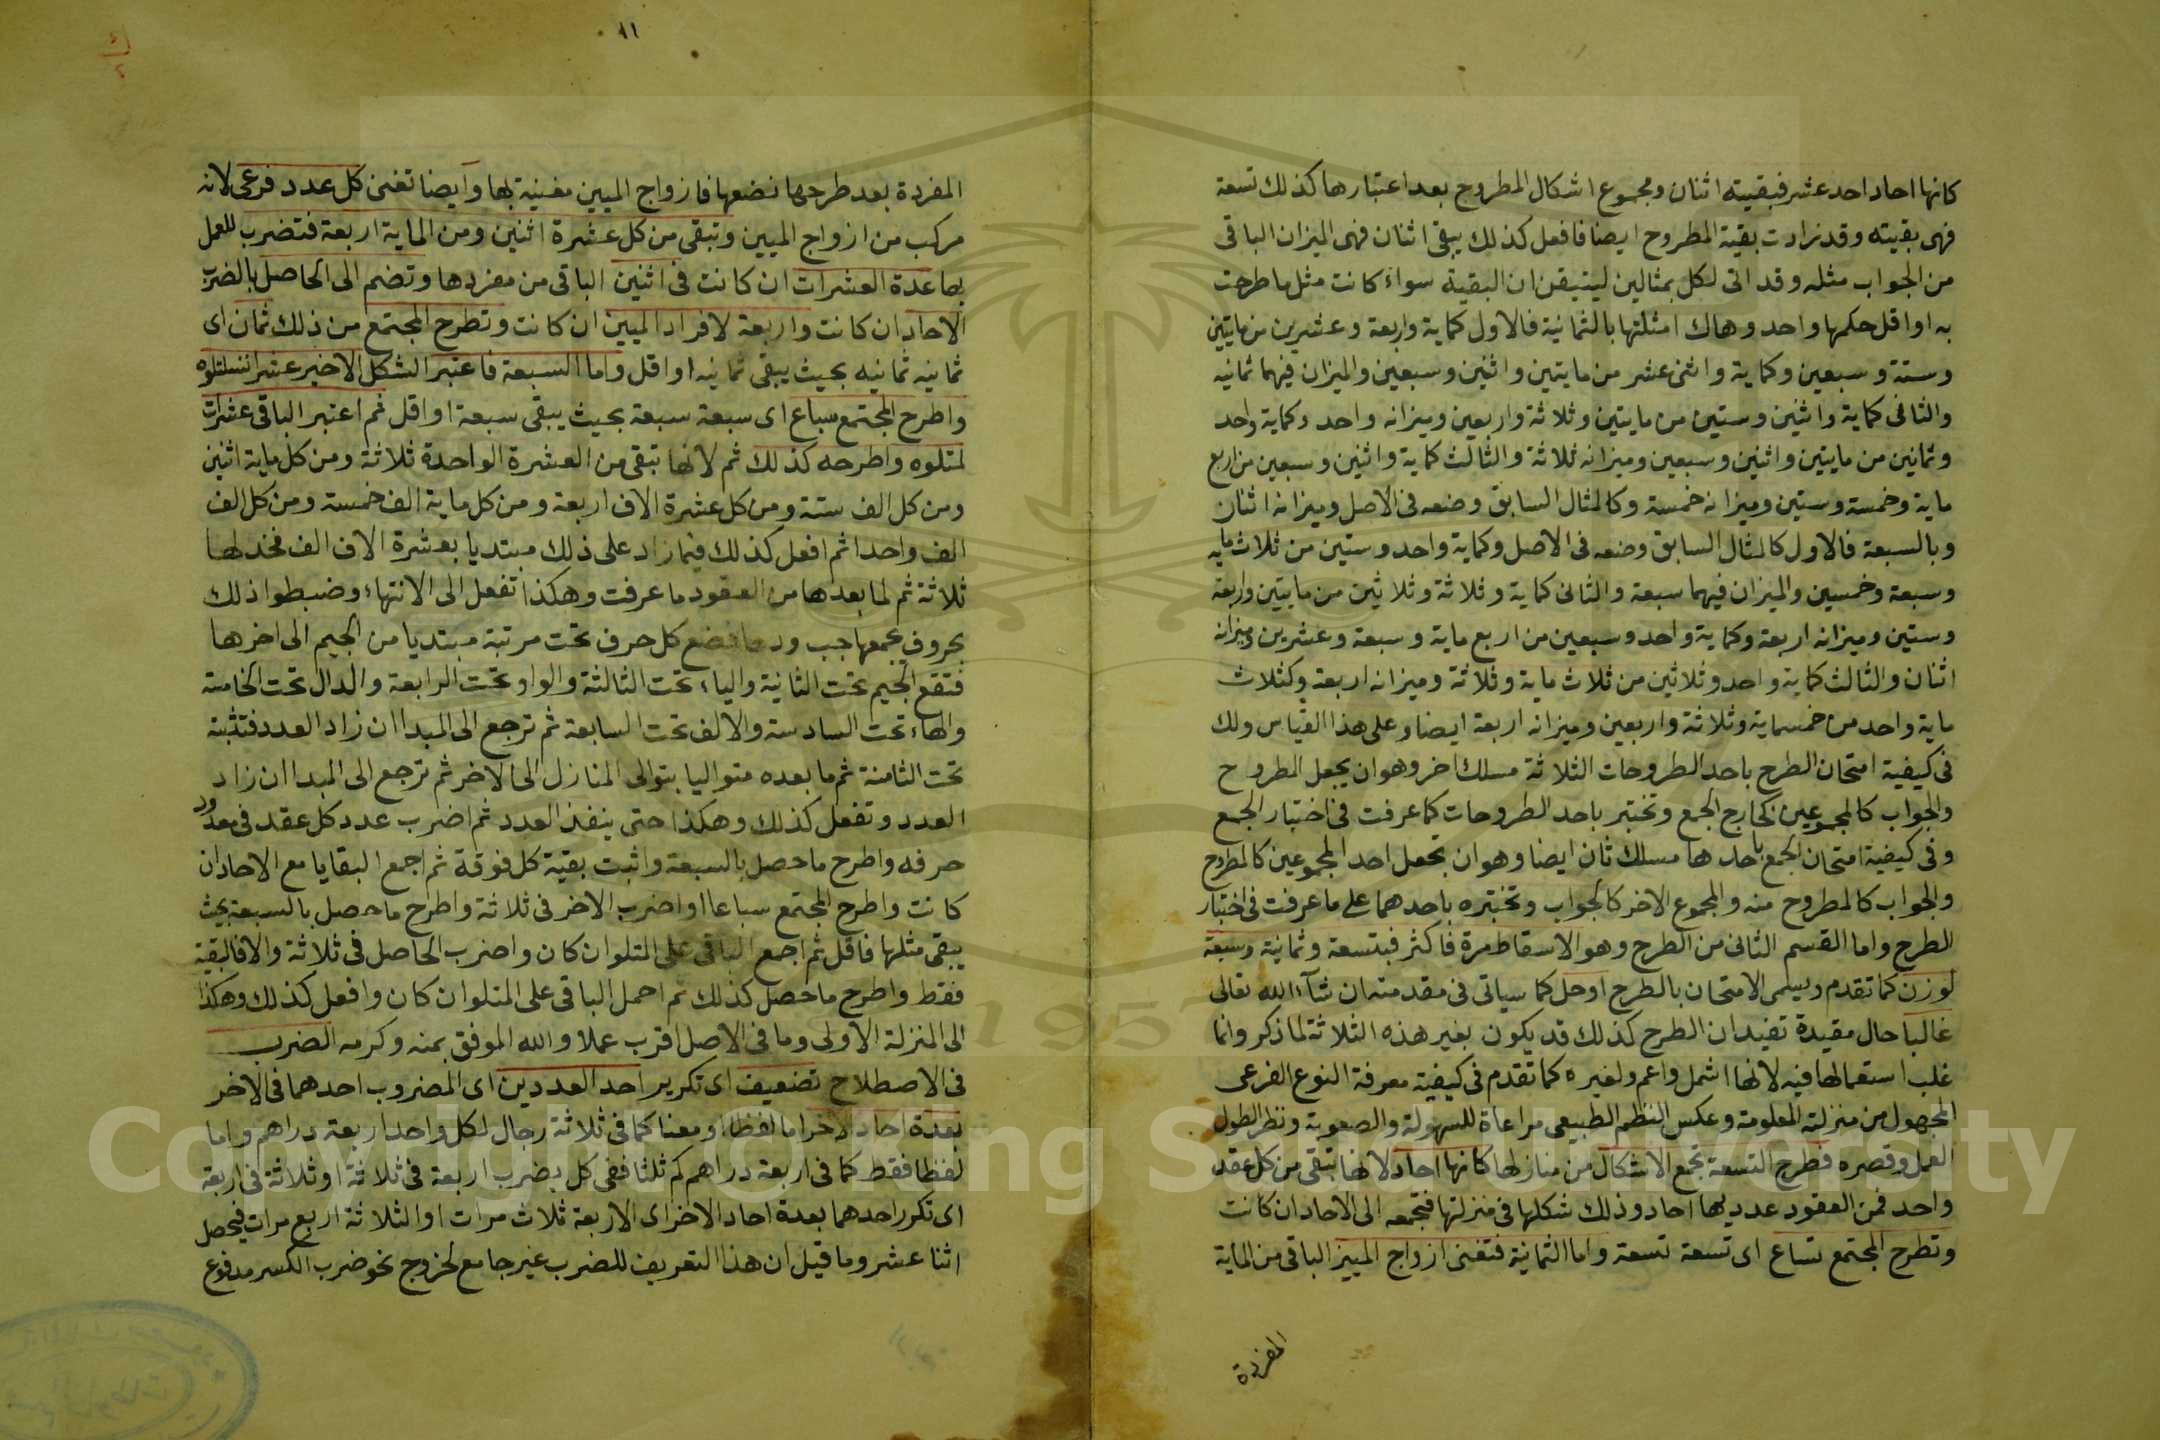 كانها احاد احد عشر فبقيته اثنان ومجموع اشكال المطروح بعد اعتبارها كذلك تسعة
فهى بقيته وقد زادت بقية المطروح ايضا فافعل كذلك يبقى اثنان فهى الميزان الباقى
من الجواب مثله وقد اتى لكل بمثالين ليتيقن ان البقية سواء كانت مثل ما طرحت
به او اقل حكمها واحد وهاك امثلتها بالثمانية فالاول كماية واربعة وعشرين من مايتين
وستة وسبعين وكماية واثنى عشر من مايتين واثنين وسبعين والميزان فيهما ثمانيه
والثانى كماية واثنين وستين من مايتين وثلاثة واربعين وميزانه واحد وكماية واحد
وثمانين من مايتين واثنين وسبعين وميزانه ثلاثة والثالث كماية واثنين وسبعين من اربع
ماية وخمسة وستين وميزانه خمسة وكالمثال السابق وضعه فى الاصل وميزانه اثنان
وبالسبعة فالاول كالمثال السابق وضعه فى الاصل وكماية واحد وستين من ثلاث مايه
وسبعة وخمسين والميزان فيهما سبعة والثانى كماية وثلاثة وثلاثين من مايتين واربعة
وستين وميزانه اربعة وكماية واحد وسبعين من اربع ماية وسبعة وعشرين وميزانه
اثنان والثالث كماية واحد وثلاثين من ثلاث ماية وثلاثة وميزانه اربعة وكثلاث
ماية واحد من خمسماية وثلاثة واربعين وميزانه اربعة ايضا وعلى هذا القياس ولك
فى كيفية امتحان الطرح باحد الطروحات الثلاثة مسلك اخر وهو ان يجعل المطروح
والجواب كالمجموعين كخارج الجمع وتختبر باحد الطروحات كما عرفت فى اختبار الجمع
وفى كيفية امتحان الجمع باحدها مسلك ثان ايضا وهو ان تجعل احد المجموعين كالمطروح
والجواب كالمطروح منه والمجموع الاخر كالجواب وتختبره باحدهما على ما عرفت فى اختبار
الطرح واما القسم الثانى من الطرح وهو الاسقاط مرة فاكثر فبتسعة وثمانية وسبعة
لوزن كما تقدم ويسمى الامتحان بالطرح اوحل كما سياتى فى مقدمته ان شآء الله تعالى
غالبا حال مقيدة تفيد ان الطرح كذلك قد يكون بغير هذه الثلاثة لما ذكر وانما
غلب استعمالها فيه لانها اشمل واعم ولغيره كما تقدم فى كيفية معرفة النوع الفرعى
المجهول من منزلته المعلومة وعكس النظم الطبيعى مراعاة للسهولة والصعوبة ونظر الطول
العمل وقصره فطرح التسعة بجمع الاشكال من منازلها كانها احاد لانها تبقى من كل عقد
واحد فمن العقود عدديها احاد وذلك شكلها فى منزلتها فتجمعه الى الاحاد ان كانت
وتطرح المجتمع تساع اى تسعة تسعة واما الثمانية فتفنى ازواج الميين الباقى من الماية
المفردة
١١
المفردة بعد طرحها نضعها فازواج الميين مفنية بها وايضا تفنى كل عدد فرعى لانه
مركب من ازواج الميين وتبقى من كل عشرة اثنين ومن الماية اربعة فتضرب للعمل
بها عدة العشرات ان كانت فى اثنين الباقى من مفردها وتضم الى الحاصل بالضرب
الاحاد ان كانت واربعة لافراد الميين ان كانت وتطرح المجتمع من ذلك ثمان اى
ثمانيه ثمانيه بحيث يبقى ثمانيه او اقل واما السبعة فاعتبر الشكل الاخير عشرا لمتلوه
واطرح المجتمع سباع اى سبعة سبعة بحيث يبقى سبعة او اقل ثم اعتبر الباقى عشرات
لمتلوه واطرحه كذلك ثم لانها تبقى من العشرة الواحدة ثلاثة ومن كل ماية اثنين
ومن كل الف ستة ومن كل عشرة الاف اربعة ومن كل ماية الف خمسة ومن كل الف
الف واحدا ثم افعل كذلك فيما زاد على ذلك مبتديا بعشرة الاف الف فخذ لها
ثلاثة ثم لما بعدها من العقود ما عرفت وهكذا تفعل الى الانتهاء وضبطوا ذلك
بحروف يجمعها جب ودها فضع كل حرف تحت مرتبة مبتديا من الجيم الى اخرها
فتقع الجيم تحت الثانية والباء تحت الثالثة والواو تحت الرابعة والدال تحت الخامسة
والهاء تحت السادسة والالف تحت السابعة ثم ترجع الى المبدا ان زاد العدد فتثبته
تحت الثامنة ثم ما بعده متواليا بتوالى المنازل الى الاخر ثم ترجع الى المبدا ان زاد
العدد وتفعل كذلك وهكذا حتى ينفذ العدد ثم اضرب عدد كل عقد فى معدود
حرفه واطرح ما حصل بالسبعة واثبت بقية كل فوقه ثم اجمع البقايا مع الاحاد ان
كانت واطرح المجتمع سباعا او اضرب الاخر فى ثلاثة واطرح ما حصل بالسبعة بحيث
يبقى مثلها فاقل ثم اجمع الباقى على المتلو ان كان واضرب الحاصل فى ثلاثة والا فالبقية
فقط واطرح ما حصل كذلك ثم احمل الباقى على المتلو ان كان وافعل كذلك وهكذا
الى المنزلة الاولى وما فى الاصل اقرب عملا والله الموفق بمنه وكرمه الضرب
فى الاصطلاح تضعيف اى تكرير احد العددين اى المضروب احدهما فى الاخر
بعدة احاد الاخر اما لفظا او معنا كما فى ثلاثة رجال لكل واحد اربعة دراهم واما
لفظا فقط كما فى اربعة دراهم كم ثلثا ففى كل يضرب اربعة فى ثلاثة او ثلاثة فى اربعة
اى تكرر احدهما بعدة احاد الاخر اى الاربعة ثلاث مرات او الثلاثة اربع مرات فيحصل
اثنا عشر وما قيل ان هذا التعريف للضرب غير جامع لخروج نحو ضرب الكسر مدفوع
Copyright © King Saud University
1957